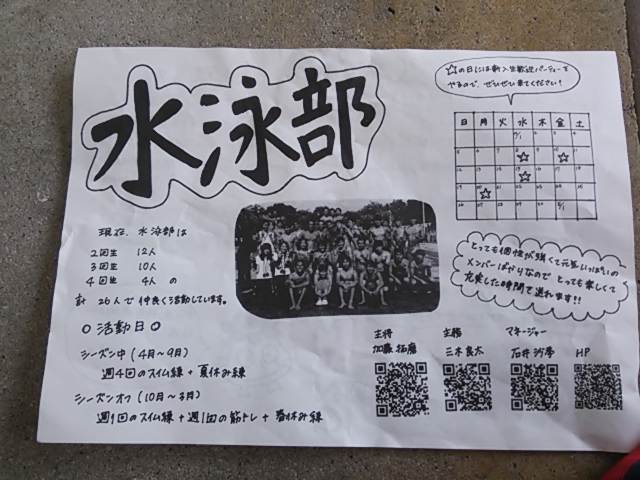 水泳部
☆の日には新入生歓迎パーティーを
やるので、ぜひぜひ来てください!
日 月 火 水 木 金 土
現在、水泳部は
2回生 12人
3回生 10人
4回生 4人の
計 26人で仲良く活動しています。
とっても個性が強くて元気いっぱいの
メンバーばかりなので とっても楽しくて
充実した時間で送れます!!
○活動日○
シーズン中(4月〜9月)
週4回のスイム練+夏休み練
シーズンオフ(10月〜3月)
週1回のスイム練+週1回の筋トレ+春休み練
主将
加藤 拓磨
主務
三木 良太
マネージャー
石井
HP